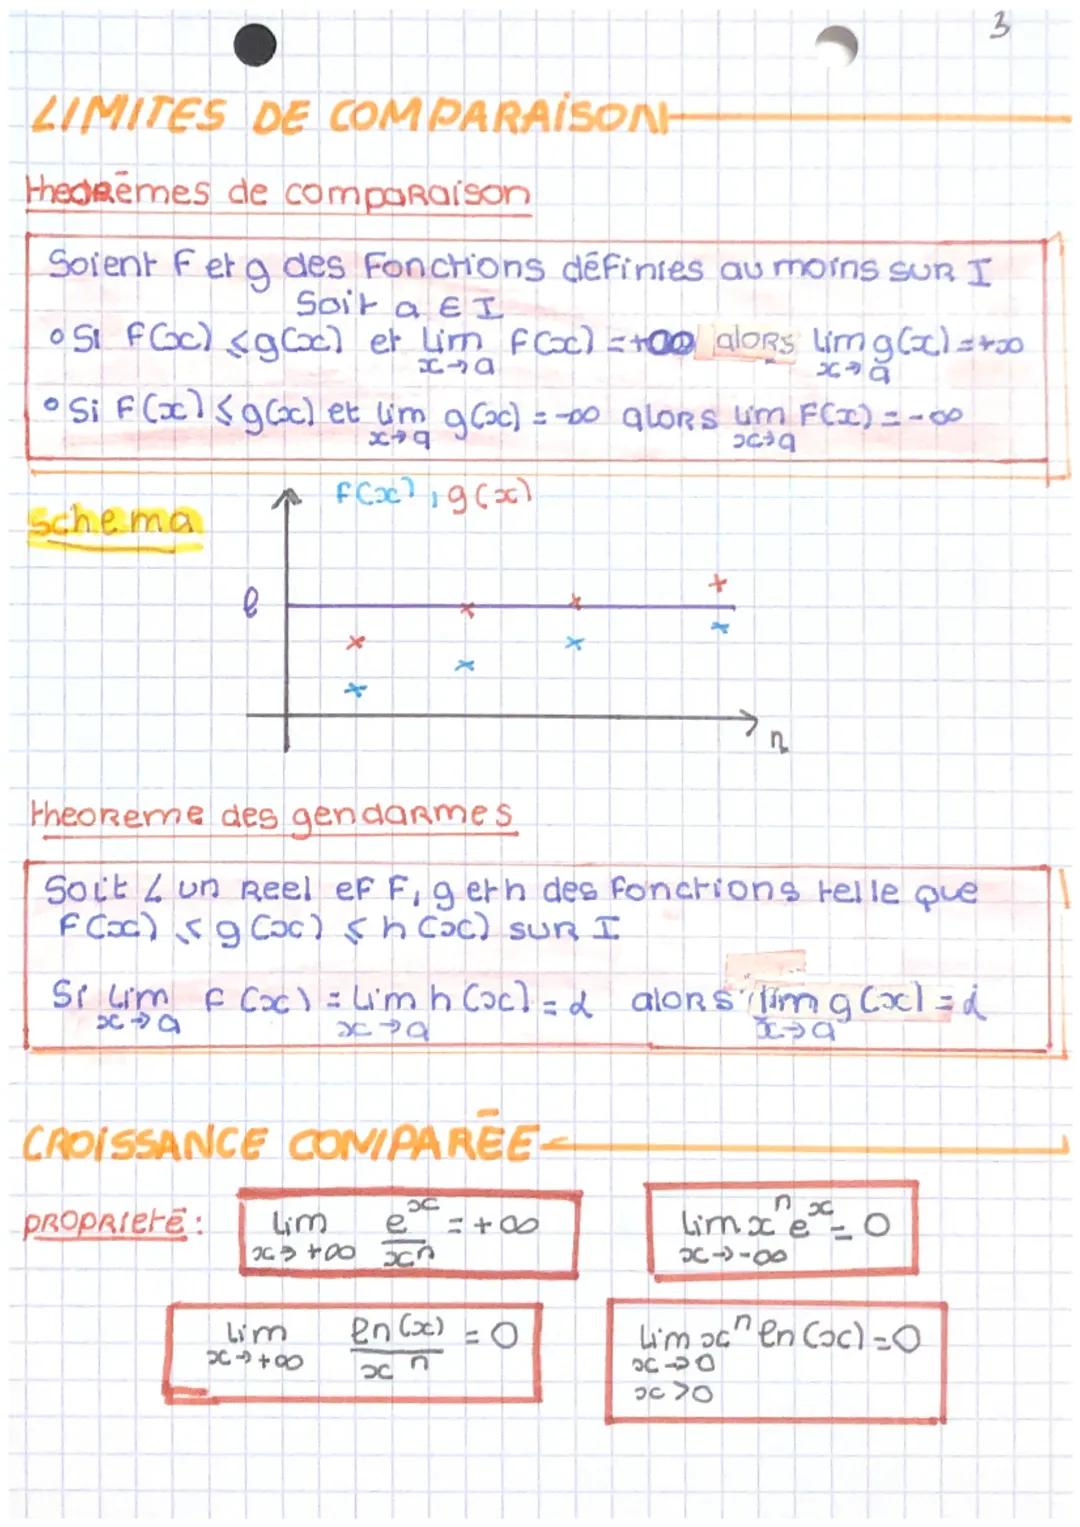 3
LIMITES DE COMPARAISON
theorēmes de comparaison
Soient f et g des Fonctions définies au moins sur I
Soit a ∈ I
• Si f(x) ≤ g(x) et lim f(x) = +∞ alors lim g(x) = +∞
x→a x→a
• Si f(x) ≤ g(x) et lim g(x) = -∞ alors lim f(x) = -∞
x→a x→a
schema
f(x), g(x)
l
n
theoreme des gendarmes
Soit L un Reel et F, g et h des fonctions telle que
f(x) ≤ g(x) ≤ h(x) sur I
Si lim f(x) = lim h(x) = L alors lim g(x) = L
x→a x→a x→a
CROISSANCE COMPARĒE
propriete : lim e^x/x^n = +∞ lim x^n e^x = 0
x→+∞ x→-∞
lim ln(x)/x^n = 0 lim x^n ln(x) = 0
x→+∞ x→0
x>0